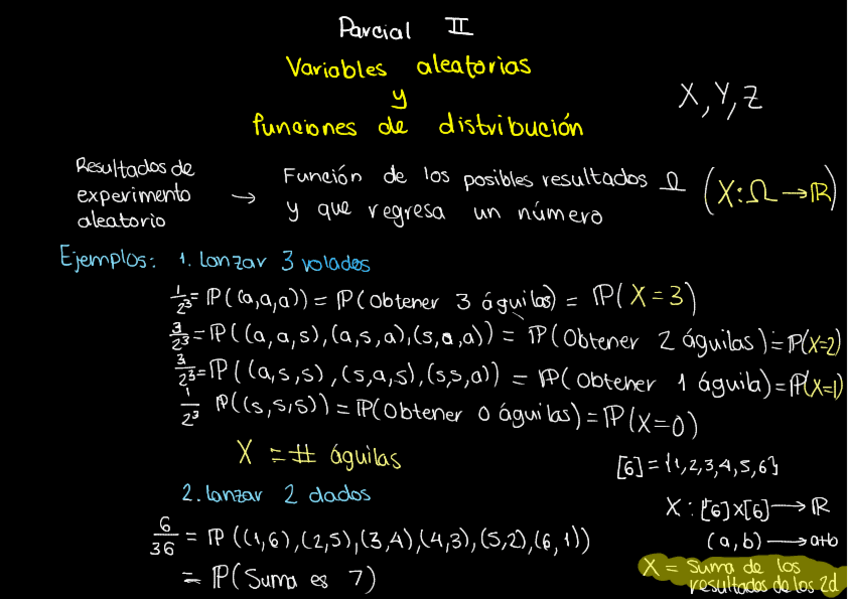 Parcial II
Variables aleatorias
y
funciones de distribución
X, Y, Z
Resultados de
experimento
aleatorio
→ Función de los posibles resultados Ω
y que regresa un número
(X:Ω→ℝ)
Ejemplos: 1. Lanzar 3 volados
1/2³ = ℙ((a,a,a)) = ℙ(Obtener 3 águilas) = ℙ(X=3)
3/2³ = ℙ((a,a,s),(a,s,a),(s,a,a)) = ℙ(Obtener 2 águilas) = ℙ(X=2)
3/2³ = ℙ((a,s,s),(s,a,s),(s,s,a)) = ℙ(Obtener 1 águila) = ℙ(X=1)
1/2³ ℙ((s,s,s)) = ℙ(Obtener 0 águilas) = ℙ(X=0)
X = # águilas
[6] = {1,2,3,4,5,6}
2. Lanzar 2 dados
X : [6]x[6] → ℝ
(a,b) → a+b
6/36 = ℙ((1,6),(2,5),(3,4),(4,3),(5,2),(6,1))
= ℙ(Suma es 7)
X = suma de los
resultados de los 2d